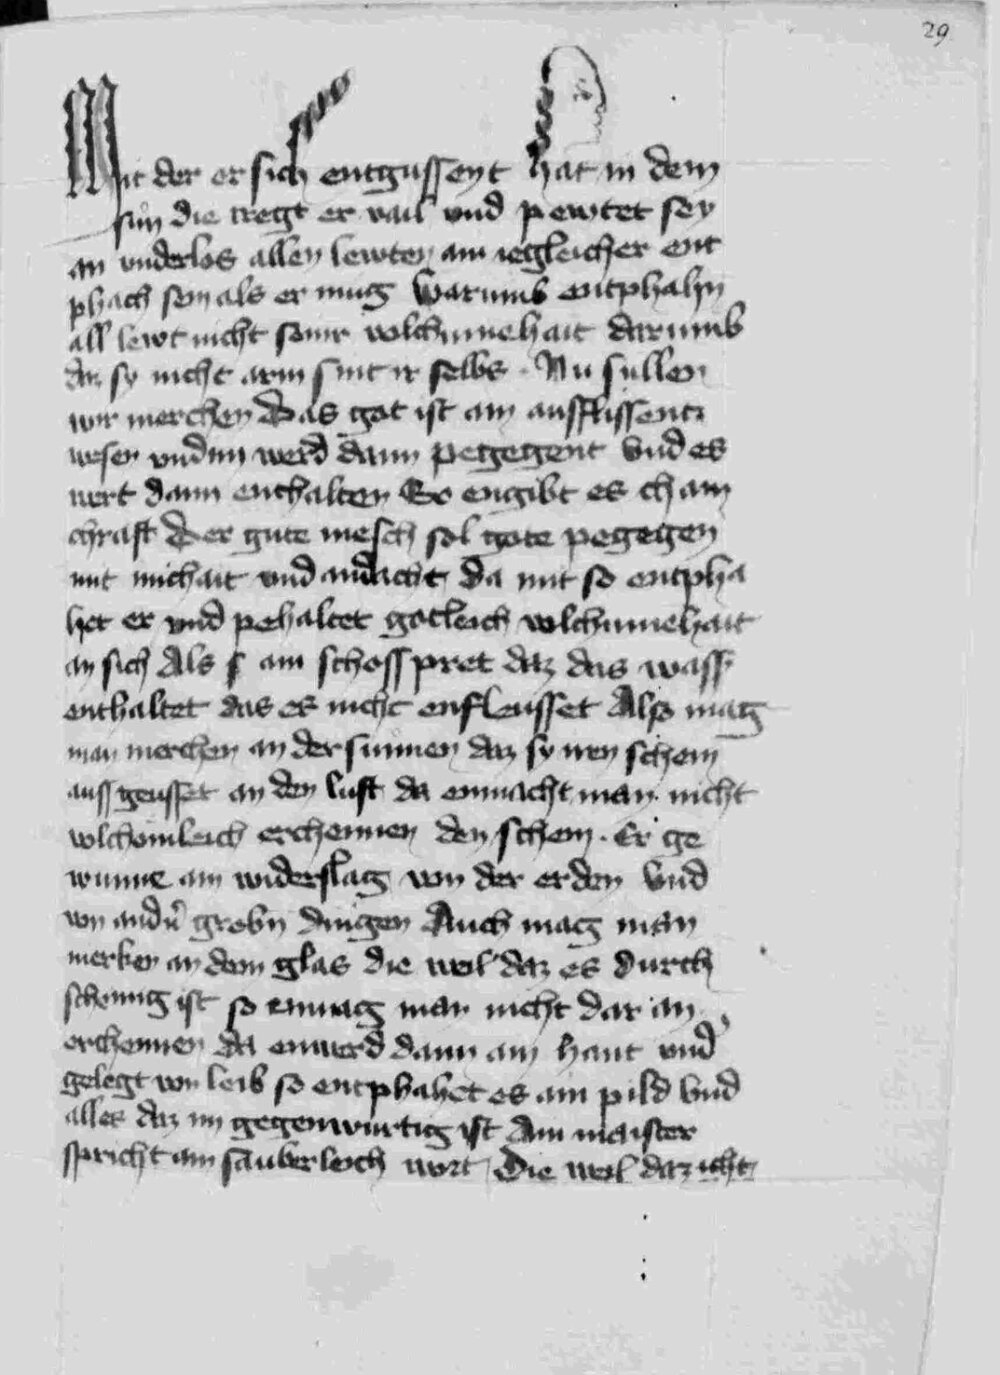 29
Mit der er sich entgussent hat in dem
sun die tregt er vail und pewtet sey
an underlos allen lewten ain iegleicher ent
phach sein als er mug Warumb entphahn
all lewt nicht seinr volchumehait darumb
daz sy nicht arm sint ir selbs. Nu sullen
wir merchen Das got ist ain ausflissentz
wesen und im werd dann pegegent Und es
wert dann enthalten So engibt es chain
chraft Der gute mesch sol gote pegegen
mit michait und andacht Da mit so entpha
het er und pehaltet gotleich volchumehait
an sich Als s ain schoss pret daz das wass
enthaltet das es nicht enfleusset Also mag
man merchen an der sunnen daz sy iren schein
aussgeusset an den luft da enmacht man nicht
volchomleich erchennen den schein. Er ge
wunne ain widerslag von der erden Und
von andn grobn dingen Auch mag man
merken an dem glas die weil daz es durch
scheinig ist so enmag man nicht dar an
erchennen da enwerd dann ain haut und
gelegt von leib so entphahet es ain pild Und
alles daz im gegenwurtig ist Ain maister
spricht ain sauberleich wort Die weil daz icht